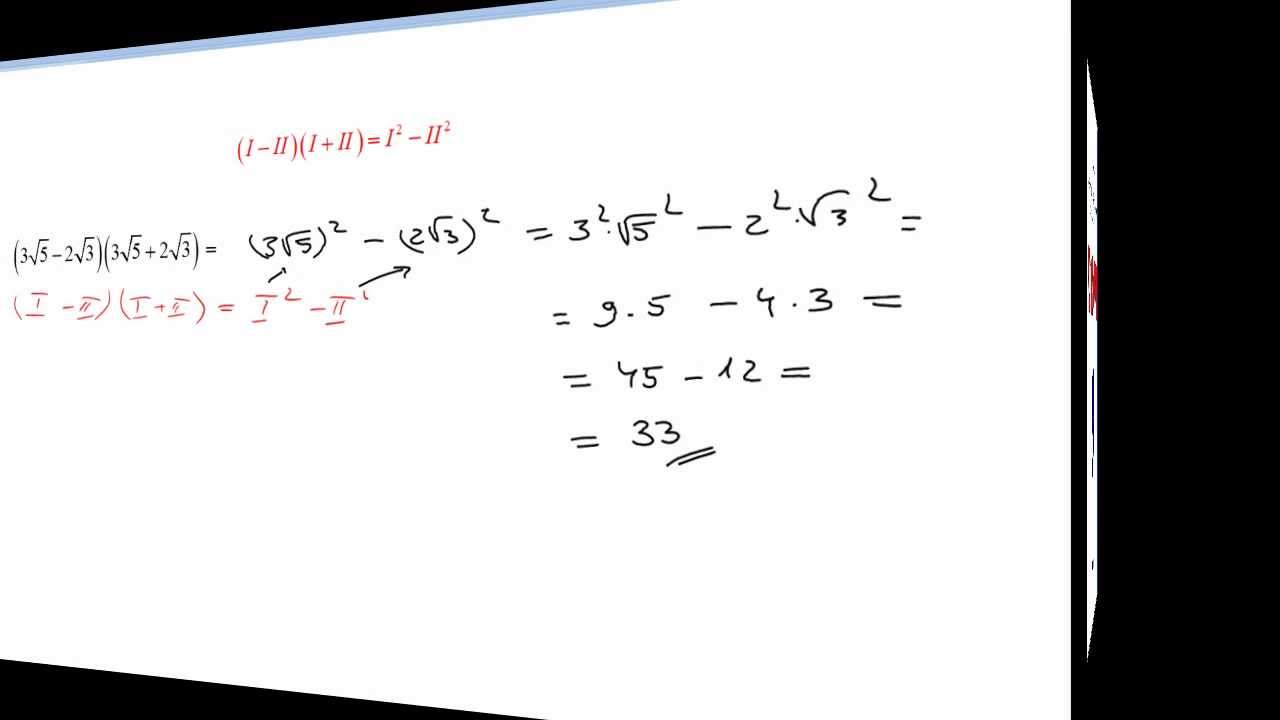 (I−II)(I+II)=I²−II²
(3√5−2√3)(3√5+2√3)= (3√5)² − (2√3)² = 3²·√5² − 2²·√3² =
(I −II)(I+II) = I² −II²
= 9·5 − 4·3 =
= 45 − 12 =
= 33